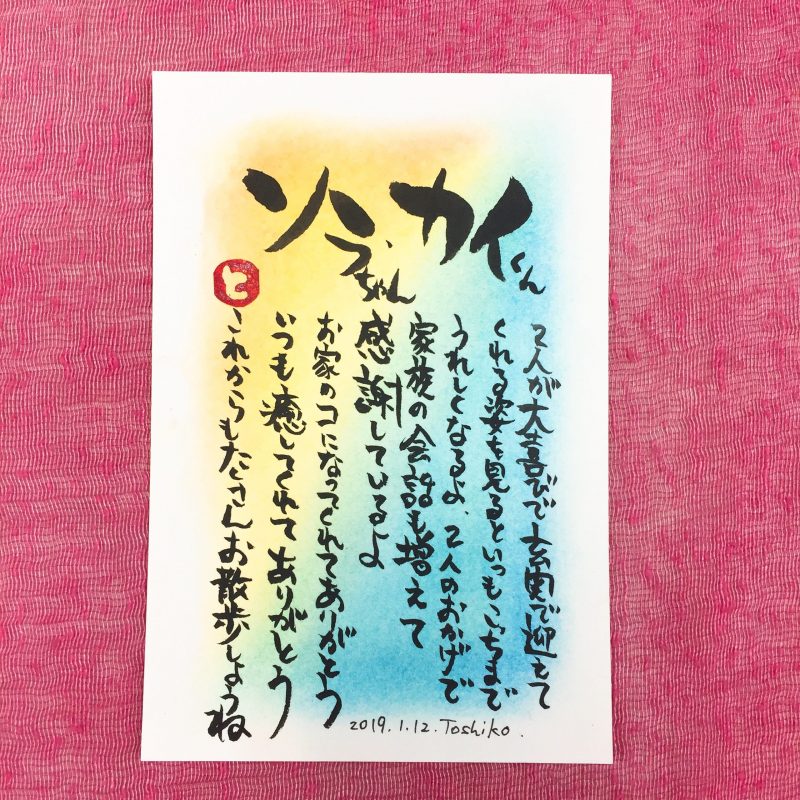 ソラちゃん カイくん
2人が大喜びで玄関で迎えて
くれる姿を見るといつもこっちまで
うれしくなるよ、2人のおかげで
家族の会話も増えて
感謝しているよ
お家のコになってくれてありがとう
いつも癒してくれてありがとう
これからもたくさんお散歩しようね
と
2019.1.12.Toshiko.